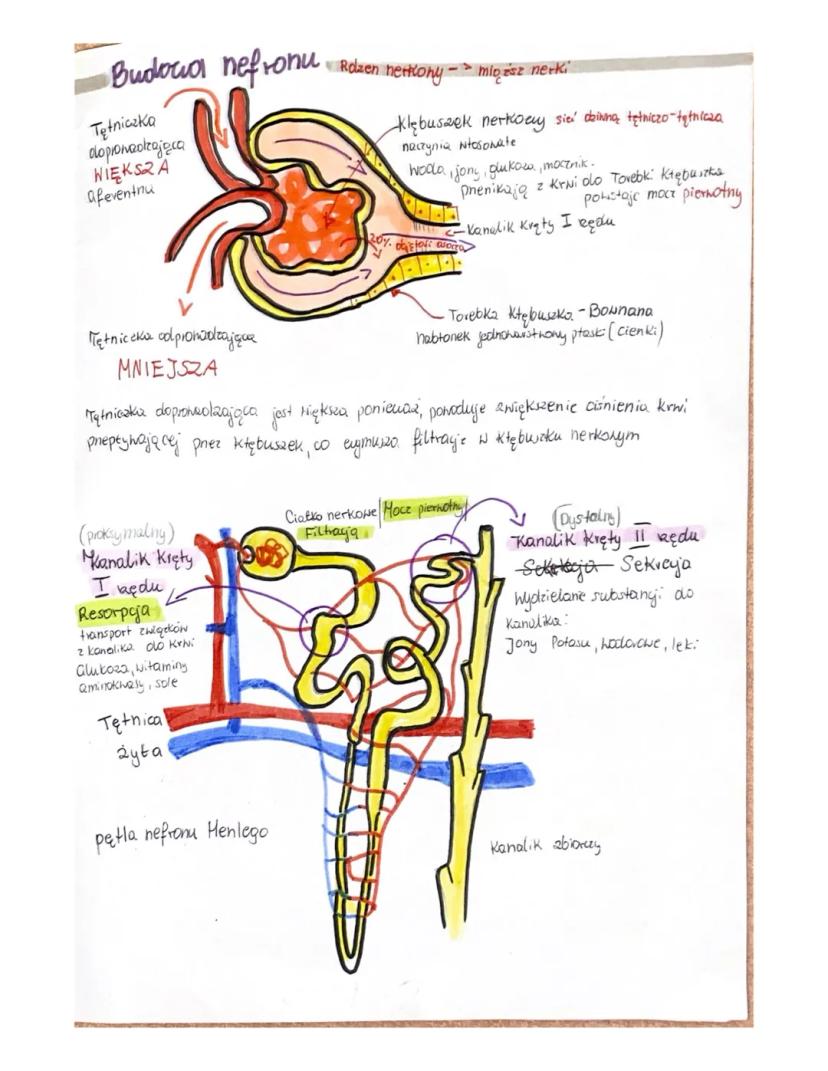 Budowa nefronu Rdzen nerkowy -> miąższ nerki
Tętniczka
doprowadzająca
WIĘKSZA
aferentnu
kłębuszek nerkowy sieć dziwna tętniczo-tętnicza
naczynia włosowate
woda, jony, glukoza, mocznik.
pnenikają z krwi do Torebki kłębuszka
powstaje mocz pierwotny
Kanalik kręty I rzędu
20% objętości osocza
Torebka kłębuszka - Bowmana
nabłonek jednowarstwowy płaski (cienki)
Tętniczka odprowadzająca
MNIEJSZA
Tętniczka doprowadzająca jest większa ponieważ, powoduje zwiększenie ciśnienia krwi
pnepływającej pnez kłębuszek, co wymusza filtrację w kłębuszku nerkowym
Ciałko nerkowe
Filtracja
Mocz pierwotny
(proksymalny)
Kanalik kręty
I rzędu
Resorpcja
transport związków
z kanalika do krwi
Glukoza, witaminy
aminokwasy, sole
(Dystalny)
Kanalik kręty II rzędu
Sekrecja
Wydzielanie substancji do
kanalika:
Jony Potasu, wodorowe, leki
Tętnica
żyła
pętla nefronu Henlego
Kanalik zbiorczy